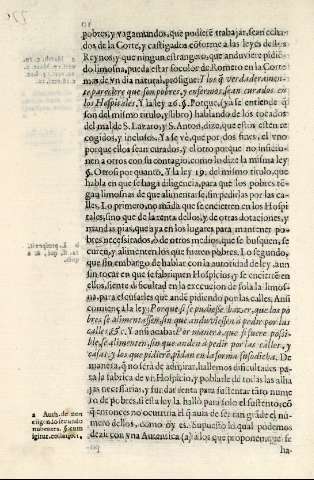 pobres, y vagamundos, que pudiesē trabajar, sean echa-
dos de la Corte, y castigados cōforme a las leyes destos
Reynos y que ningun estrangero, que anduviere pidiē-
do limosna, pueda estar so color de Romero en la Corte
mas de vn dia natural, prosigue: Y los q̄ verdaderamen-
se pareciere que son pobres, y enfermos, sean curados en
los Hospitales. Y la ley 26. §. Porque, (ya se entiende q̄
son del mismo titulo, y libro) hablando de los tocados
del mal de S. Lazaro, y S. Anton, dizo, que estos estèn re-
cogidos, y inclusos. Ya se vè, que por dos fines, el vno
porque ellos sean curados, y el otro porque no inficio-
nen a otros con su contagio, como lo dize la misma ley
§. Otros por quanto. Y la ley 19. del mismo titulo, que
habla en que se haga diligencia, para què los pobres tē-
gaq̄ limosnas de que alimentarse, sin pedir las por las ca-
lles. Lo primero, no māda que se encierren en los Hospi-
tales, sino que de la renta dellos, y de otras dotaciones, y
mandas pias, que aya en los lugares para mantener po-
bres necessitados, ò de otros medios, que se busquen, se
curen, y alimenten los que fueren pobres. Lo segundo,
que sin embargo de hablar con la autoridad de ley, aun
sin tocar en que se fabriquen Hospicios, y se encierrē en
ellos, siente dificultad en la execucion de sola la limos-
na, para escusarles que andē pidiendo por las calles. Ansi
comença la ley: Porque si se pudiesse hazer, que los po-
bres se alimentassen, sin que anduviessen à pedir por las
calles, &c. Y ansi acaba: Por manera, que si fuere possi-
ble, se alimenten, sin que anden à pedir por las calles, y
casas, y los que pidierē, pidan en la forma susodicha. De
manera, q̄ no serà de admirar, hallemos dificultades pa-
ra la fabrica de vn Hospicio, y poblarle de todas las alha-
jas necessarias, y fundar renta para sustentar tāto nume-
ro de pobres, si esta ley la hallò para solo el sustento, cō
q̄ entonces no ocurriria el q̄ avia de ser tan grāde el nu-
mero dellos, como oy es. Supuesto lo qual podemos
dezir con vna Autentica (a) a los que proponen, que se
ha-
a Auth. de non